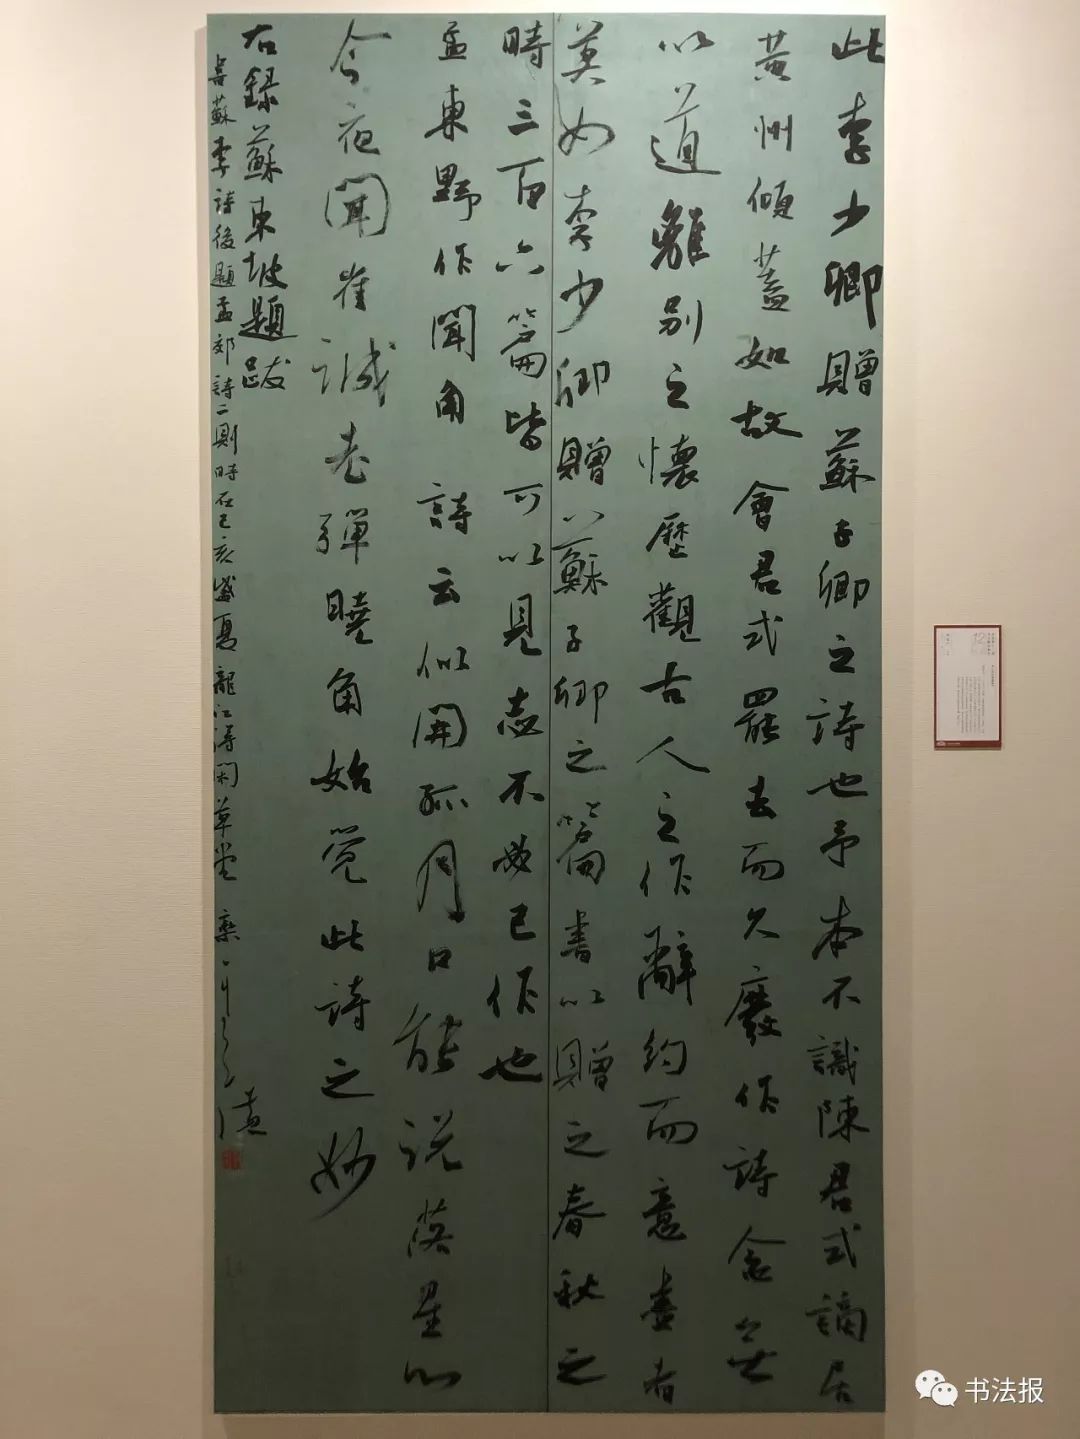 此李少卿贈蘇子卿之詩也予本不識陳君式謫居
黃州傾蓋如故會君式罷去而久廢作詩念無
以道離別之懷歷觀古人之作辭約而意盡者
莫如李少卿贈蘇子卿之篇書以贈之春秋之
時三百六篇皆可以見志不必己作也
孟東野作聞角詩云似開孤月口能說落星心
今夜聞崔誠老彈曉角始覺此詩之妙
右錄蘇東坡題跋
書蘇李詩後題孟郊詩二則時在己亥盛夏龍江得閑草堂
书法报